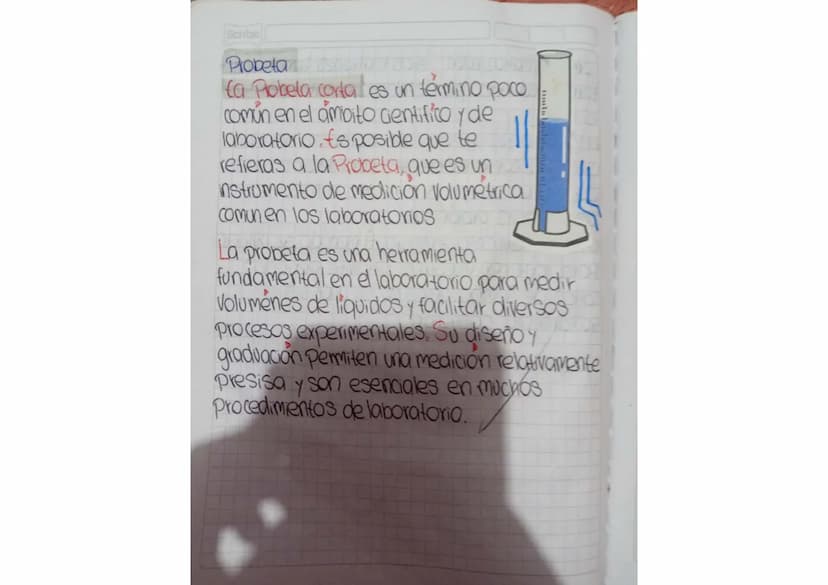 Scribe
Probeta
La Probeta corta es un término poco
común en el ámbito científico y de
laboratorio. Es posible que te
refieras a la Probeta, que es un
instrumento de medición volumétrica
comun en los laboratorios
La probeta es una herramienta
fundamental en el laboratorio para medir
volumenes de líquidos y facilitar diversos
procesos experimentales. Su diseño y
graduación permiten una medición relativamente
presisa y son esenciales en muchos
procedimentos de laboratorio.